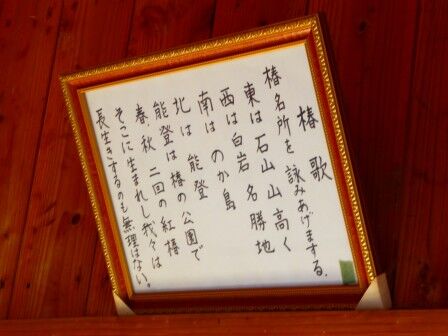 椿歌
椿名所を詠みあげまする、
東は石山山高く
西は白岩名勝地
南は能登のか島
北は椿の公園で
能登は
春、秋二回の紅椿
そこに生まれし我々は
長生きするのも無理はない。